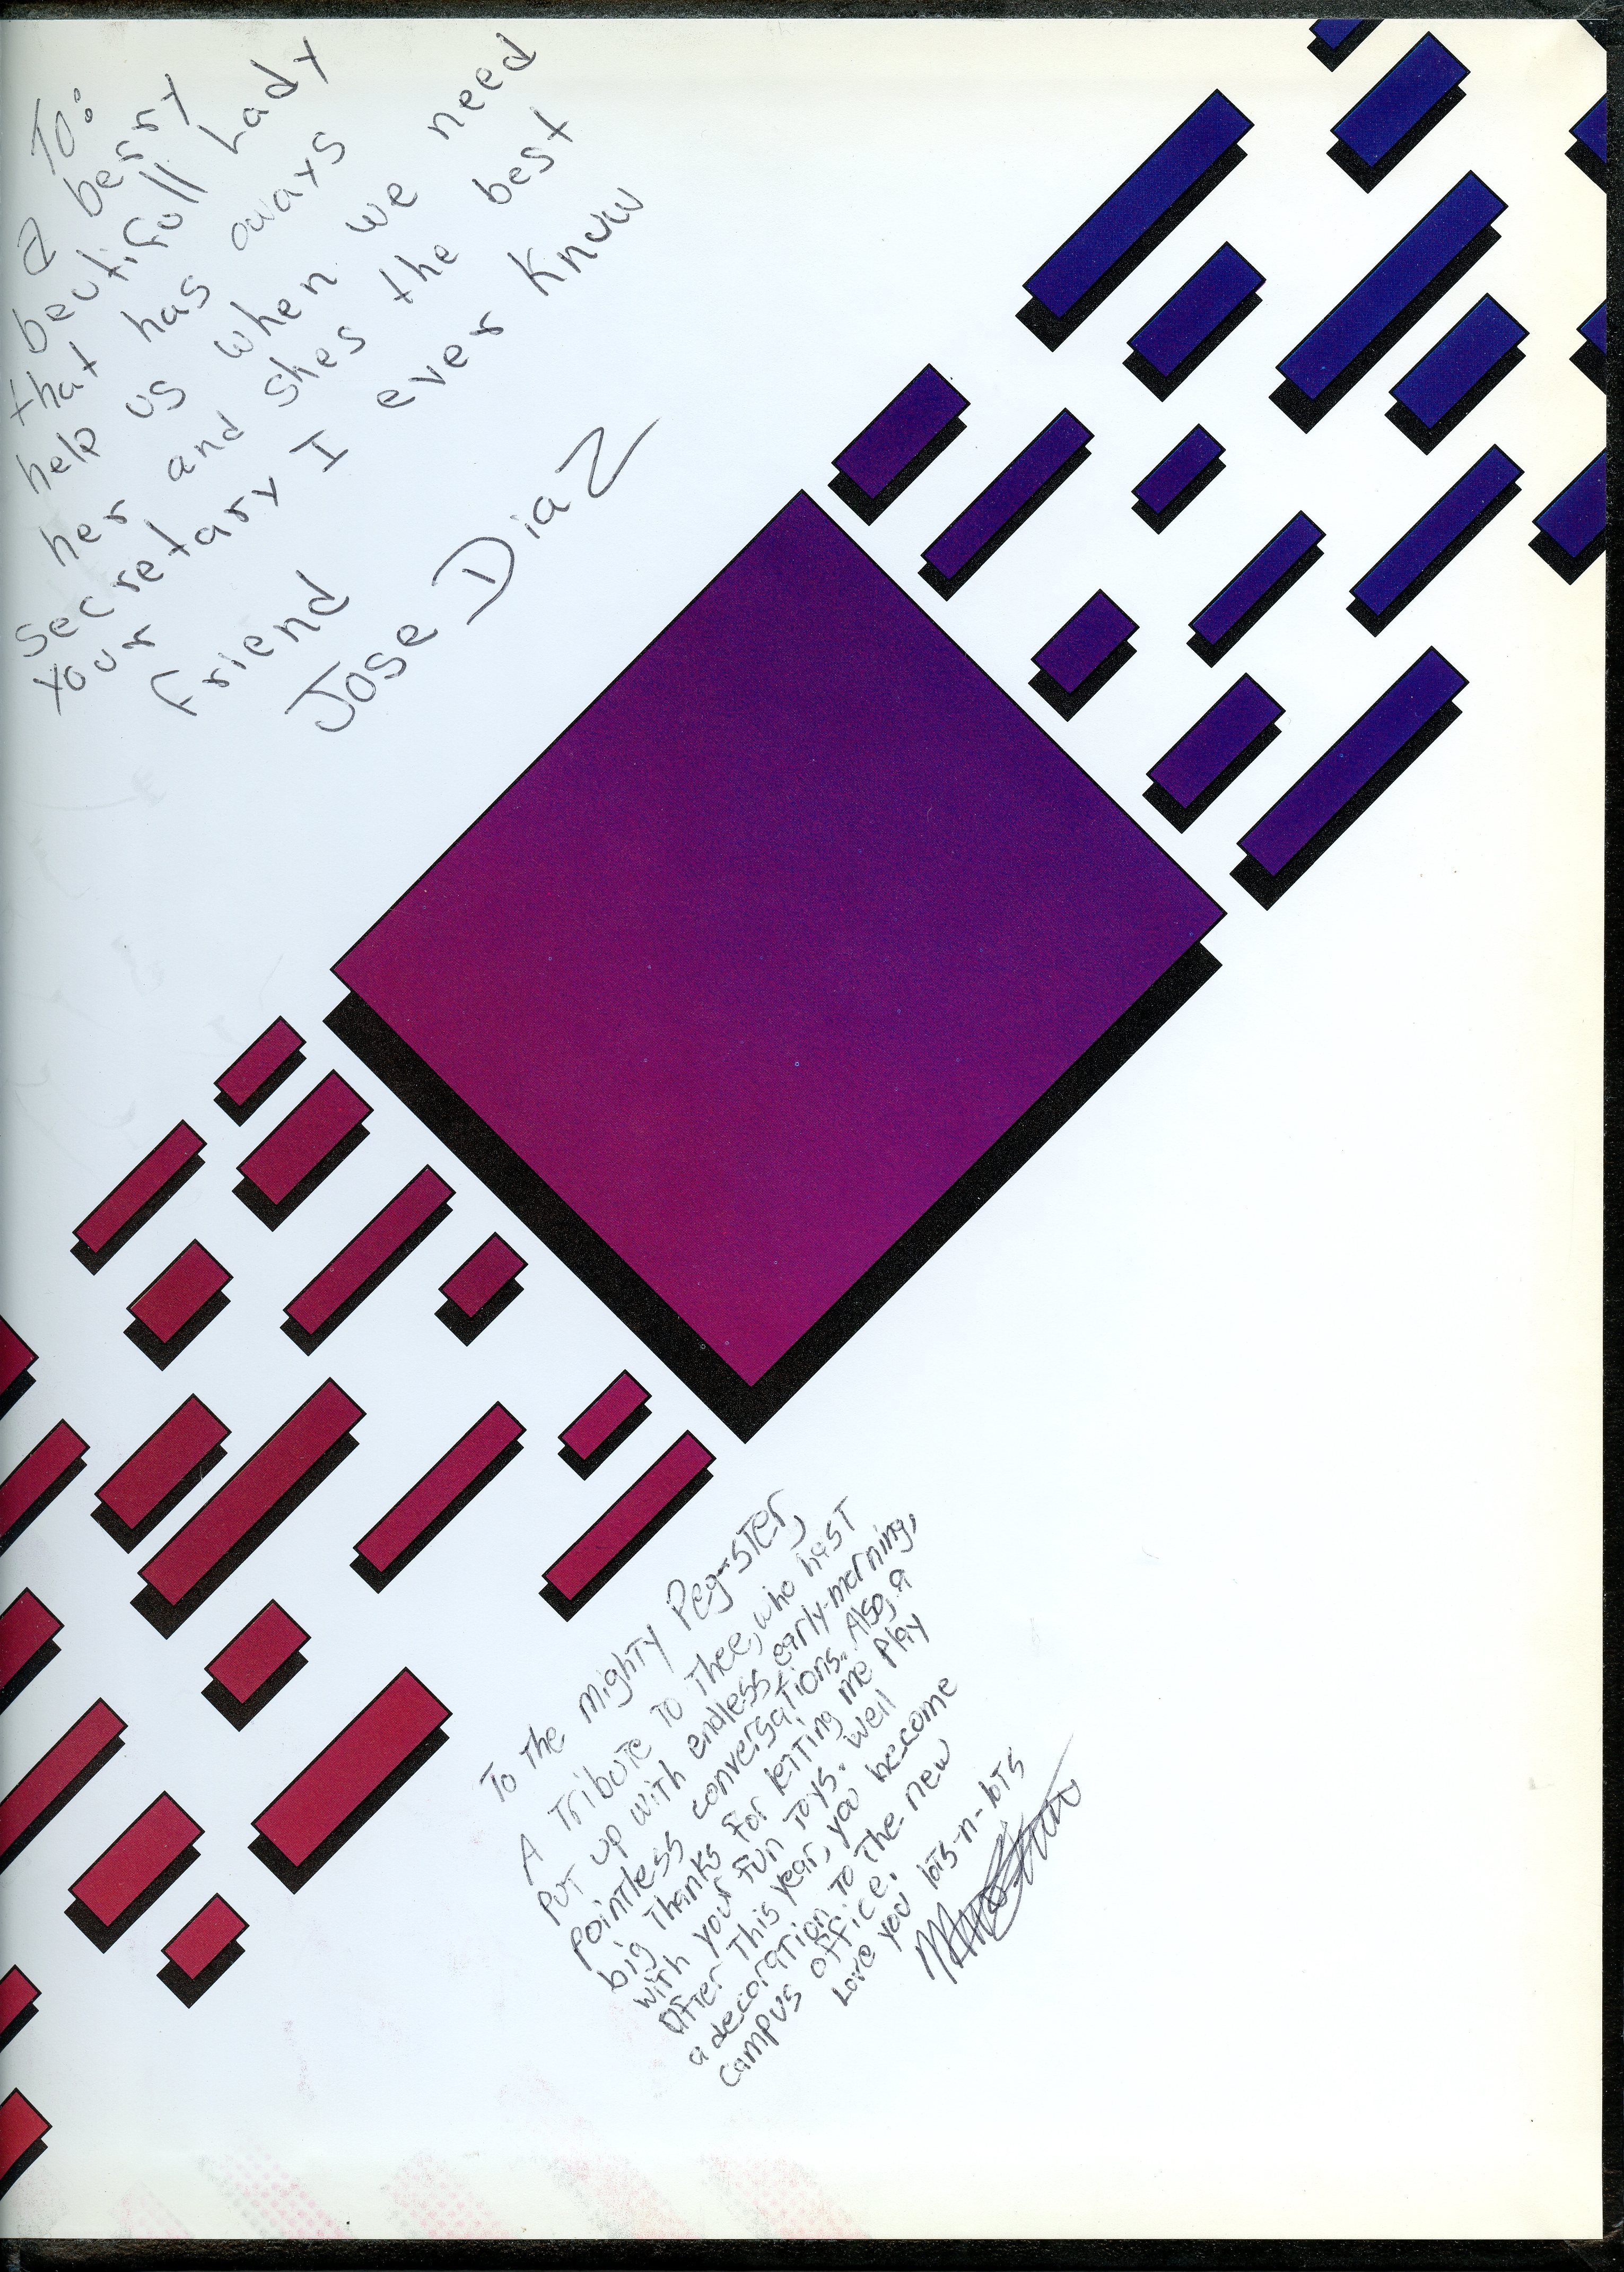 To:
a berry
beutifoll Lady
that has oways
help us when we need
her and shes the best
secretary I ever Know
Your
Friend
Jose Diaz
To the mighty Peg-ster,
A Tribute to Thee, who hast
put up with endless early-morning,
pointless conversations. Also, a
big Thanks for letting me play
with your fun toys. Well
after This year, you become
a decoration to the new
campus office.
Love you lots-n-lots